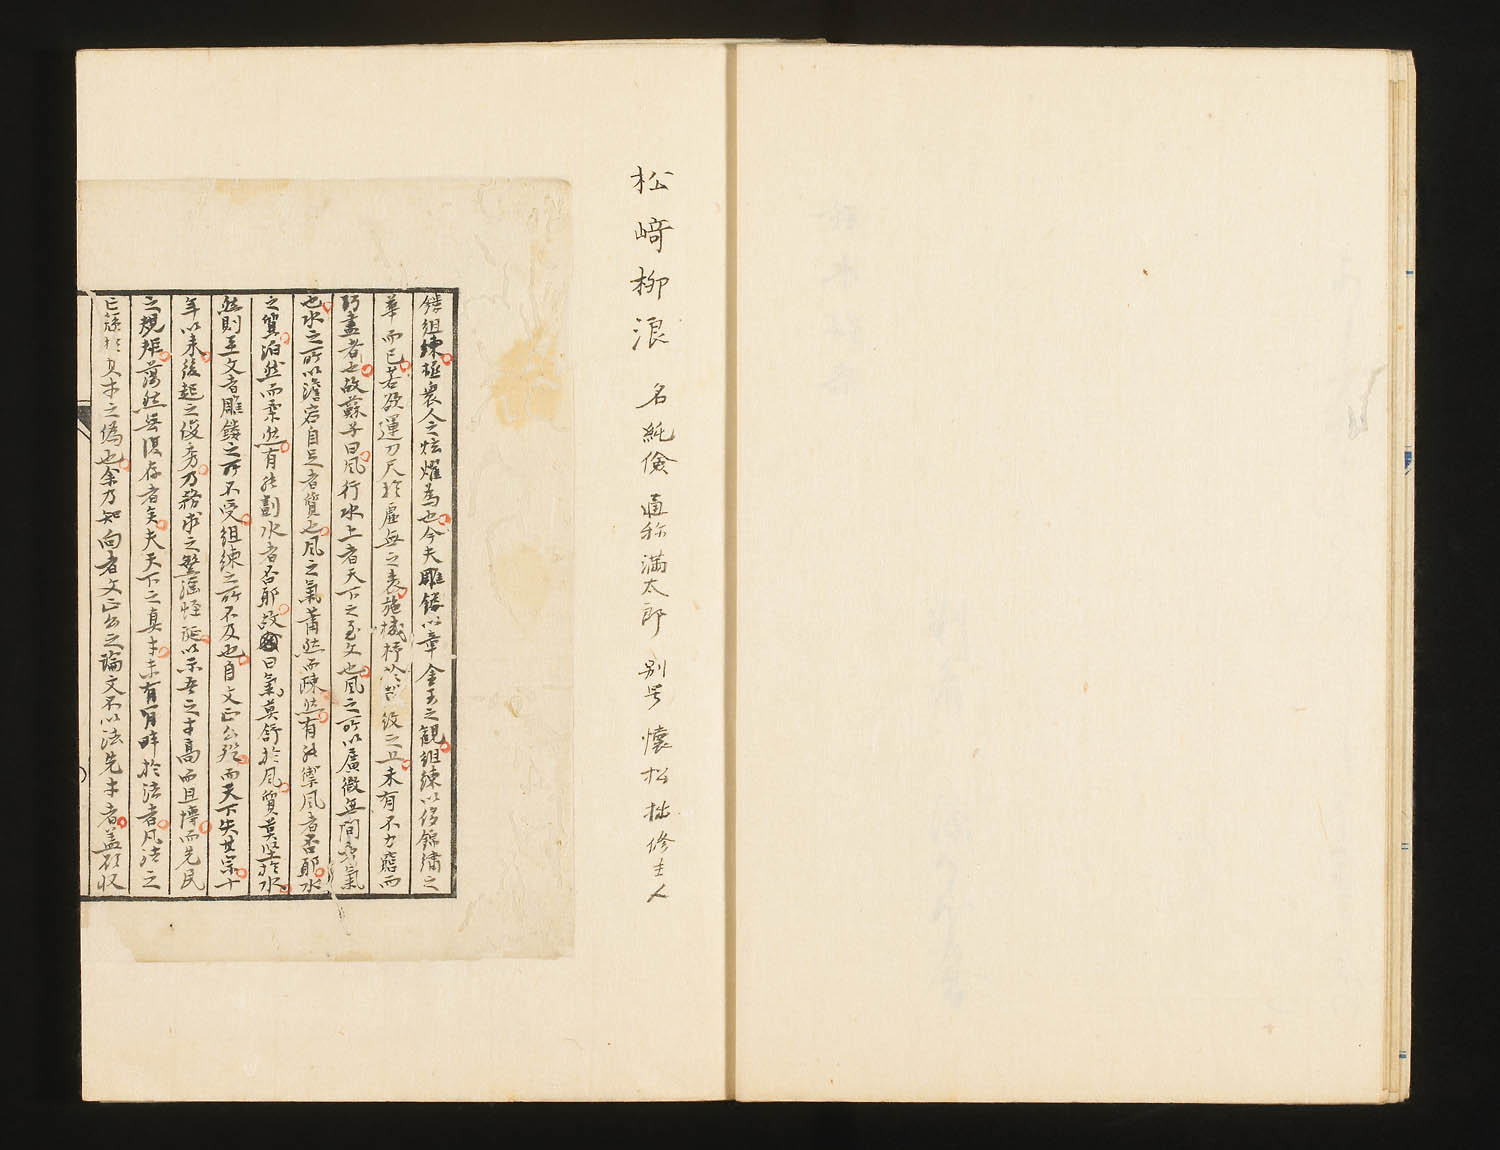 松﨑柳浪 名純儉 通称満太郎 別号懷松 拙修主人
鏤組練極衆人之炫燿為也今夫雕鏤以章金玉之観組練以侈錦繡之
華而已若及運刀尺於虚無之表施機杼於 紋之上未有不力窮而
巧盡者也故蘇子曰風行水上者天下之至文也風之所以廣微無間者氣
也水之所以澹宕自足者質也風之氣蕭然而疎然有能禦風者否耶水
之質泊然而柔然有能劃水者否耶故曰氣莫舒於風質莫堅於水
然則至文者雕鏤之所不受組練之所不及也自文正公歿而天下失其宗十
年以来後起之俊秀乃務求之繁謡怪誕以示吾之才高而且博而先民
之規矩蕩然無復存者矣夫天下之真才未有肩畔於法者凡法之
亡 於其才之偽也余乃知向者文正公之論文不以法先才者盖欲収